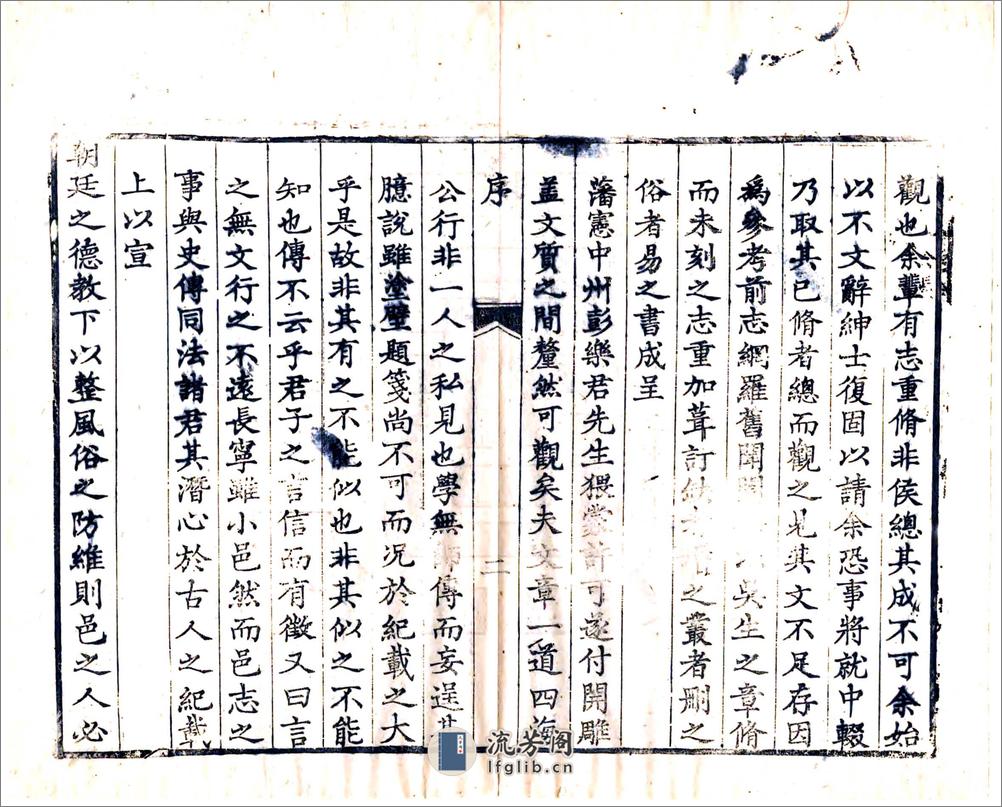 觀也余輩有志重脩非侯總其成不可余始
以不文辭紳士復固以請余恐事將就中輟
乃取其已脩者總而觀之見其文不足存因
爲參考前志網羅舊聞吳生之章脩
而未刻之志重加葺訂之叢者刪之
俗者易之書成呈
藩憲中州彭樂君先生猥蒙許可遂付開雕
盖文質之間釐然可觀矣夫文章一道四海
序
二
公行非一人之私見也學無師傳而妄逞其
臆說雖塗壁題箋尚不可而况於紀載之大
乎是故非其有之不能似也非其似之不能
知也傳不云乎君子之言信而有徵又曰言
之無文行之不遠長寧雖小邑然而邑志之
事與史傳同法諸君其潛心於古人之紀載
上以宣
朝廷之德教下以整風俗之防維則邑之人必
流芳阁
lfglib.cn